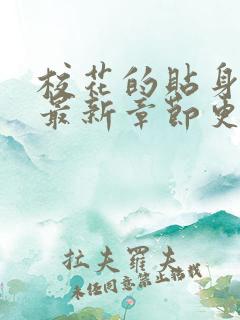 校花的貼身
最新章節更
拉夫羅夫
未经同意禁止转载